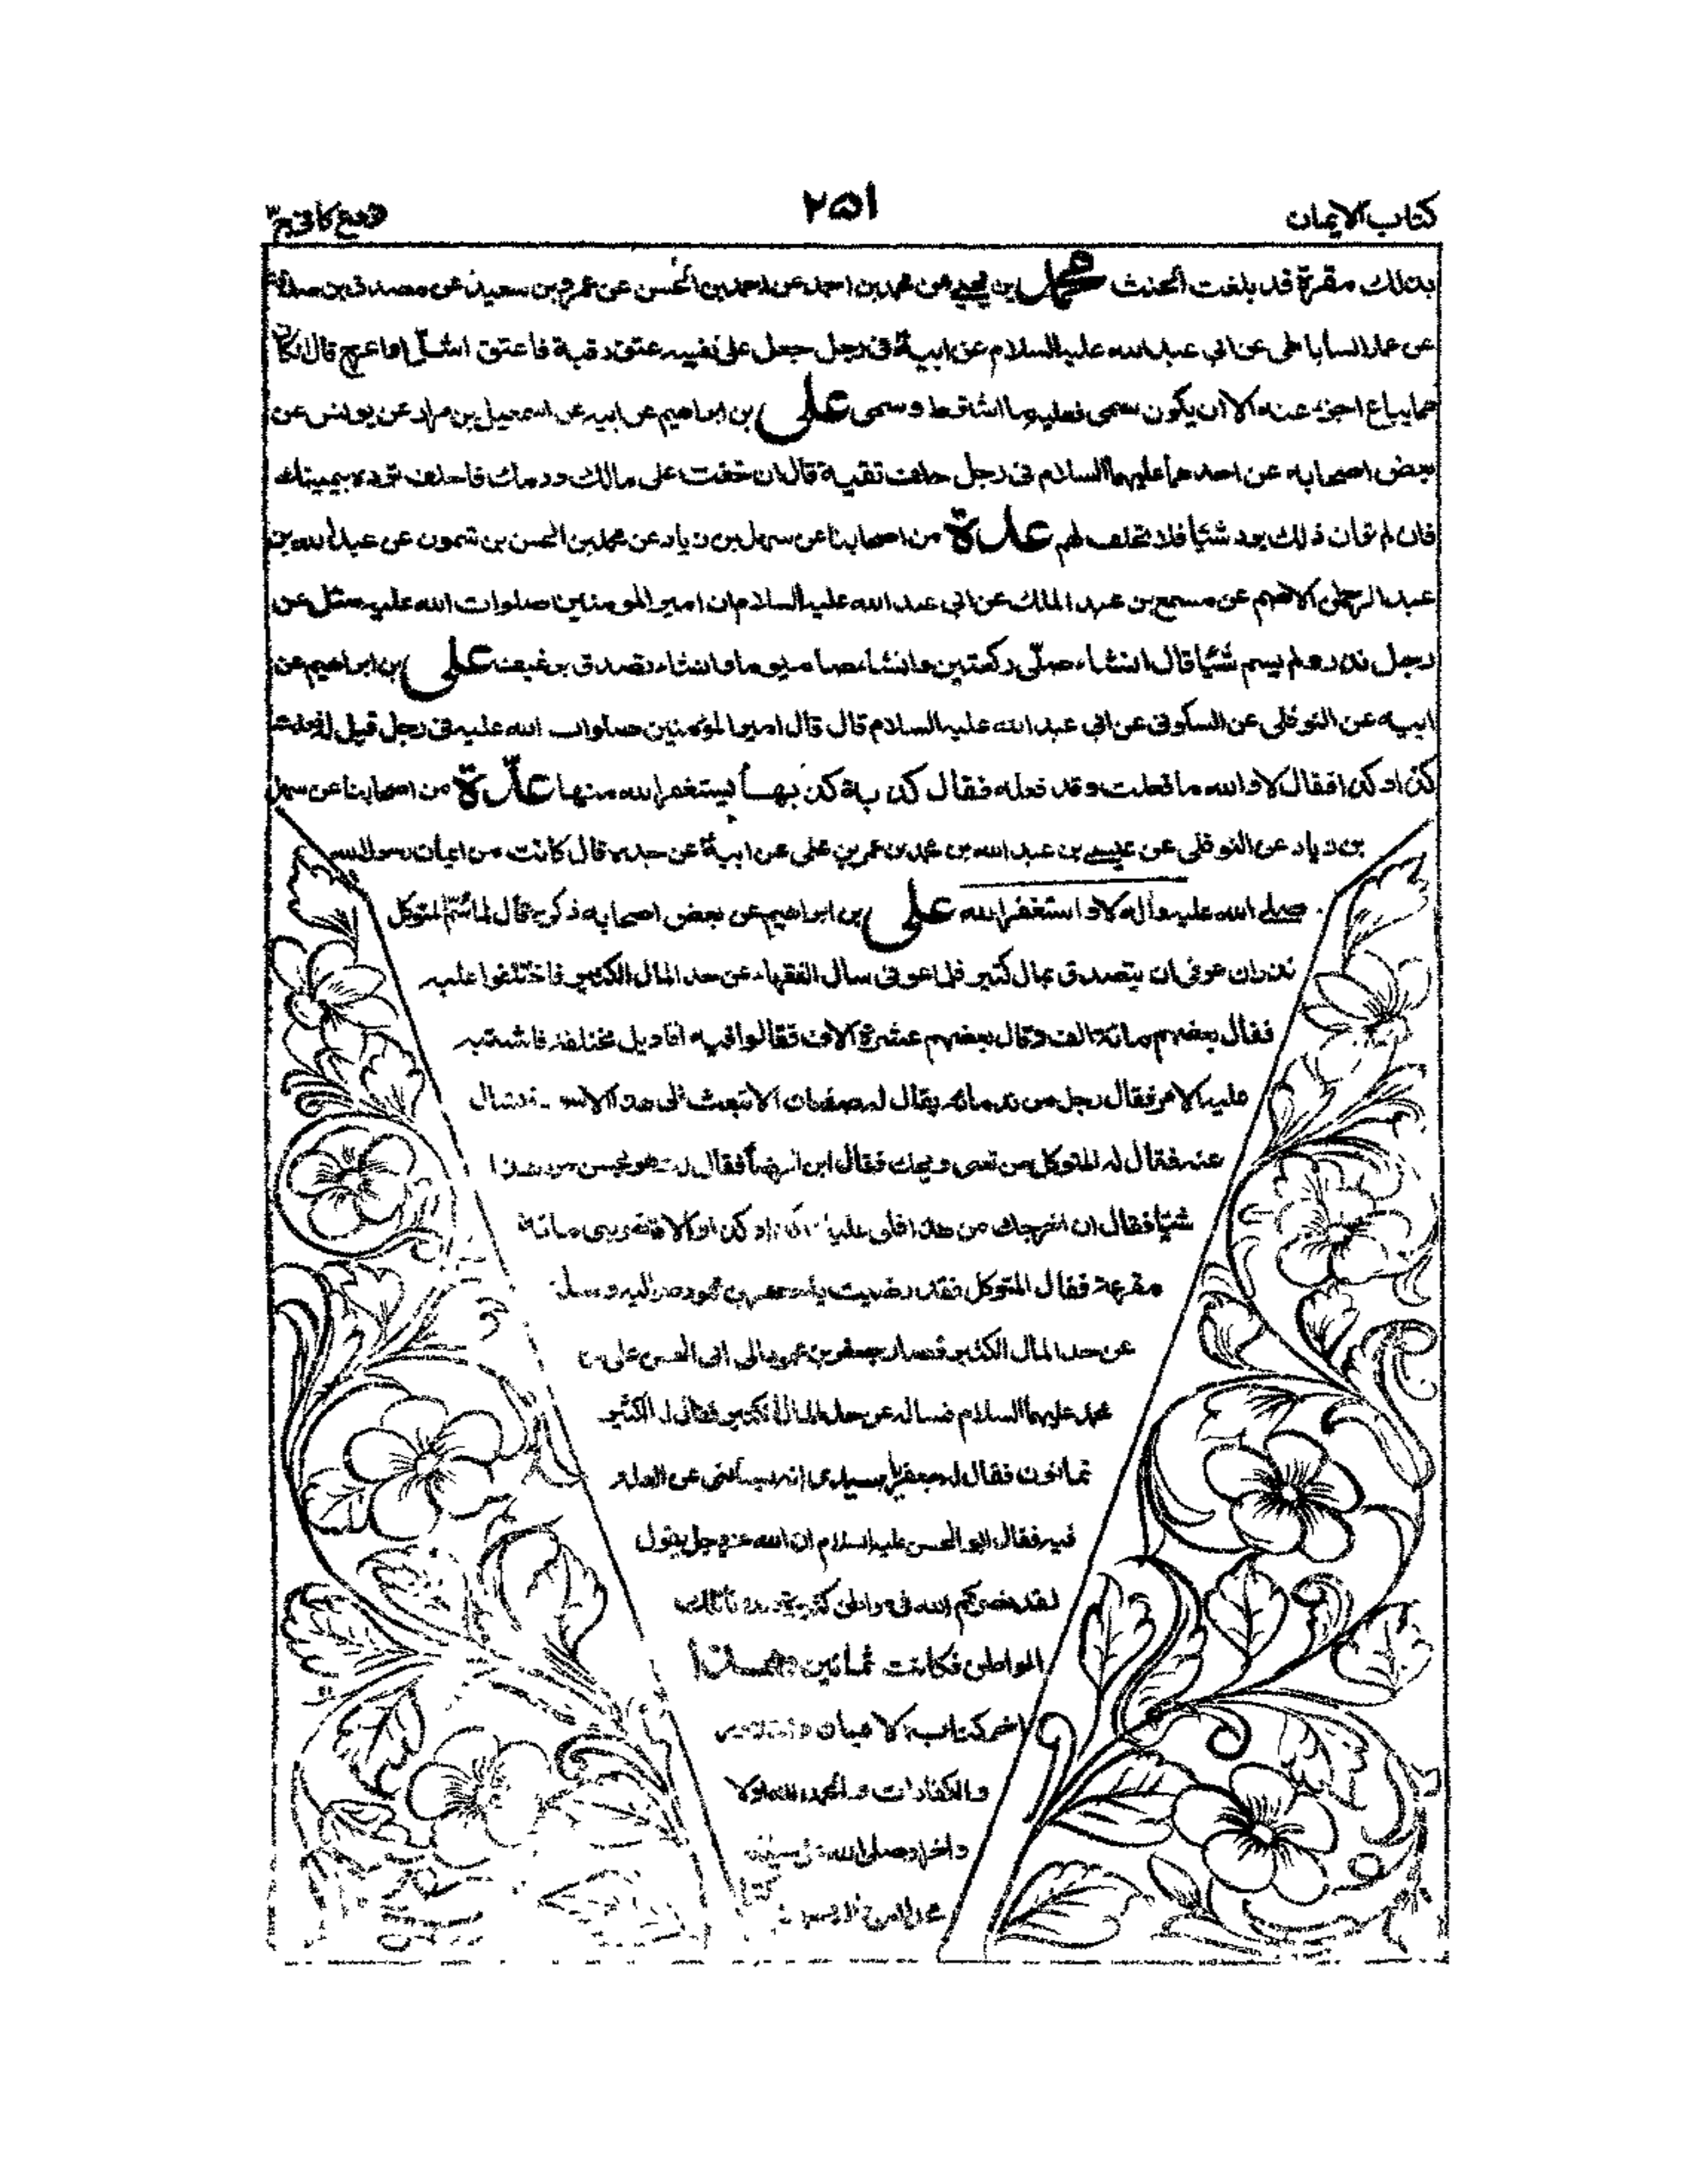 كتاب الايمان
٢٥١
فروع كافي ج ٣
بذلك مقرة قد بلغت الحنث محمد بن يحيى عن محمد بن احمد عن احمد بن الحسن عن عمرو بن سعيد عن مصدق بن صدقة
عن عمار الساباطي عن ابي عبد الله عليه السلام عن ابيه في رجل جعل على نفسه عتق رقبة فاعتق اشلّ او اعرج قال اذا كان
مما يباع اجزء عنه الا ان يكون سمى فعليه ما اشترط وسمى على بن ابراهيم عن ابيه عن اسمعيل بن مرار عن يونس عن
بعض اصحابه عن احدهما عليهما السلام في رجل حلف تقية قال ان خفت على مالك ودمك فاحلف ترده بيمينك
فان لم تر ان ذلك يرد شئيا فلا تحلف لهم عدة من اصحابنا عن سهل بن زياد عن محمد بن الحسن بن شمون عن عبد الله بن
عبد الرحمن الاصم عن مسمع بن عبد الملك عن ابي عبد الله عليه السلام ان امير المومنين صلوات الله عليه سئل عن
رجل نذر ولم يسم شئيا قال ان شاء صلّى ركعتين وان شاء صام يوما وان شاء تصدق برغيف على بن ابراهيم عن
ابيه عن النوفلى عن السكوني عن ابي عبد الله عليه السلام قال قال امير المؤمنين صلوات الله عليه في رجل قيل له فعلت
كذا وكذا فقال لا والله ما فعلت وقد فعله فقال كذبة كذبها يستغفر الله منها عدّة من اصحابنا عن سهل
بن زياد عن النوفلى عن عيسى بن عبد الله بن محمد بن عمر بن على عن ابيه عن جده قال كانت من ايمان رسول الله
صلى الله عليه وآله لا واستغفر الله على بن ابراهيم عن بعض اصحابه ذكره قال لما سُمّ المتوكل
نذر ان عوفى ان يتصدق بمال كثير فلما عوفى سال الفقهاء عن حد المال الكثير فاختلفوا عليه
فقال بعضهم مائة الف وقال بعضهم عشرة الاف فقالوا فيه اقاويل مختلفة فاشتبه
عليه الامر فقال رجل من ندمائه يقال له صفعان الا تبعث الى هذا الاسود فتسال
عنه فقال له المتوكل من تعنى ويحك فقال ابن الرضا فقال له وهو يحسن من هذا
شئيا فقال ان اخرجك من هذا فلى عليك كذا وكذا والا فاضربنى مائة
مقرعة فقال المتوكل فقد رضيت يا جعفر بن محمود صر اليه وسله
عن حد المال الكثير فصار جعفر بن محمود الى ابى الحسن على بن
محمد عليهما السلام فساله عن حد المال الكثير فقال له الكثير
ثمانون فقال له جعفر يا سيدى انه يسألنى عن العلة
فيه فقال ابو الحسن عليه السلام ان الله عز وجل يقول
لقد نصركم الله في مواطن كثيرة فعددنا تلك
المواطن فكانت ثمانين
اخر كتاب الايمان والنذور
والكفارات والحمد لله اولا
واخرا وصلى الله على سيدنا
محمد